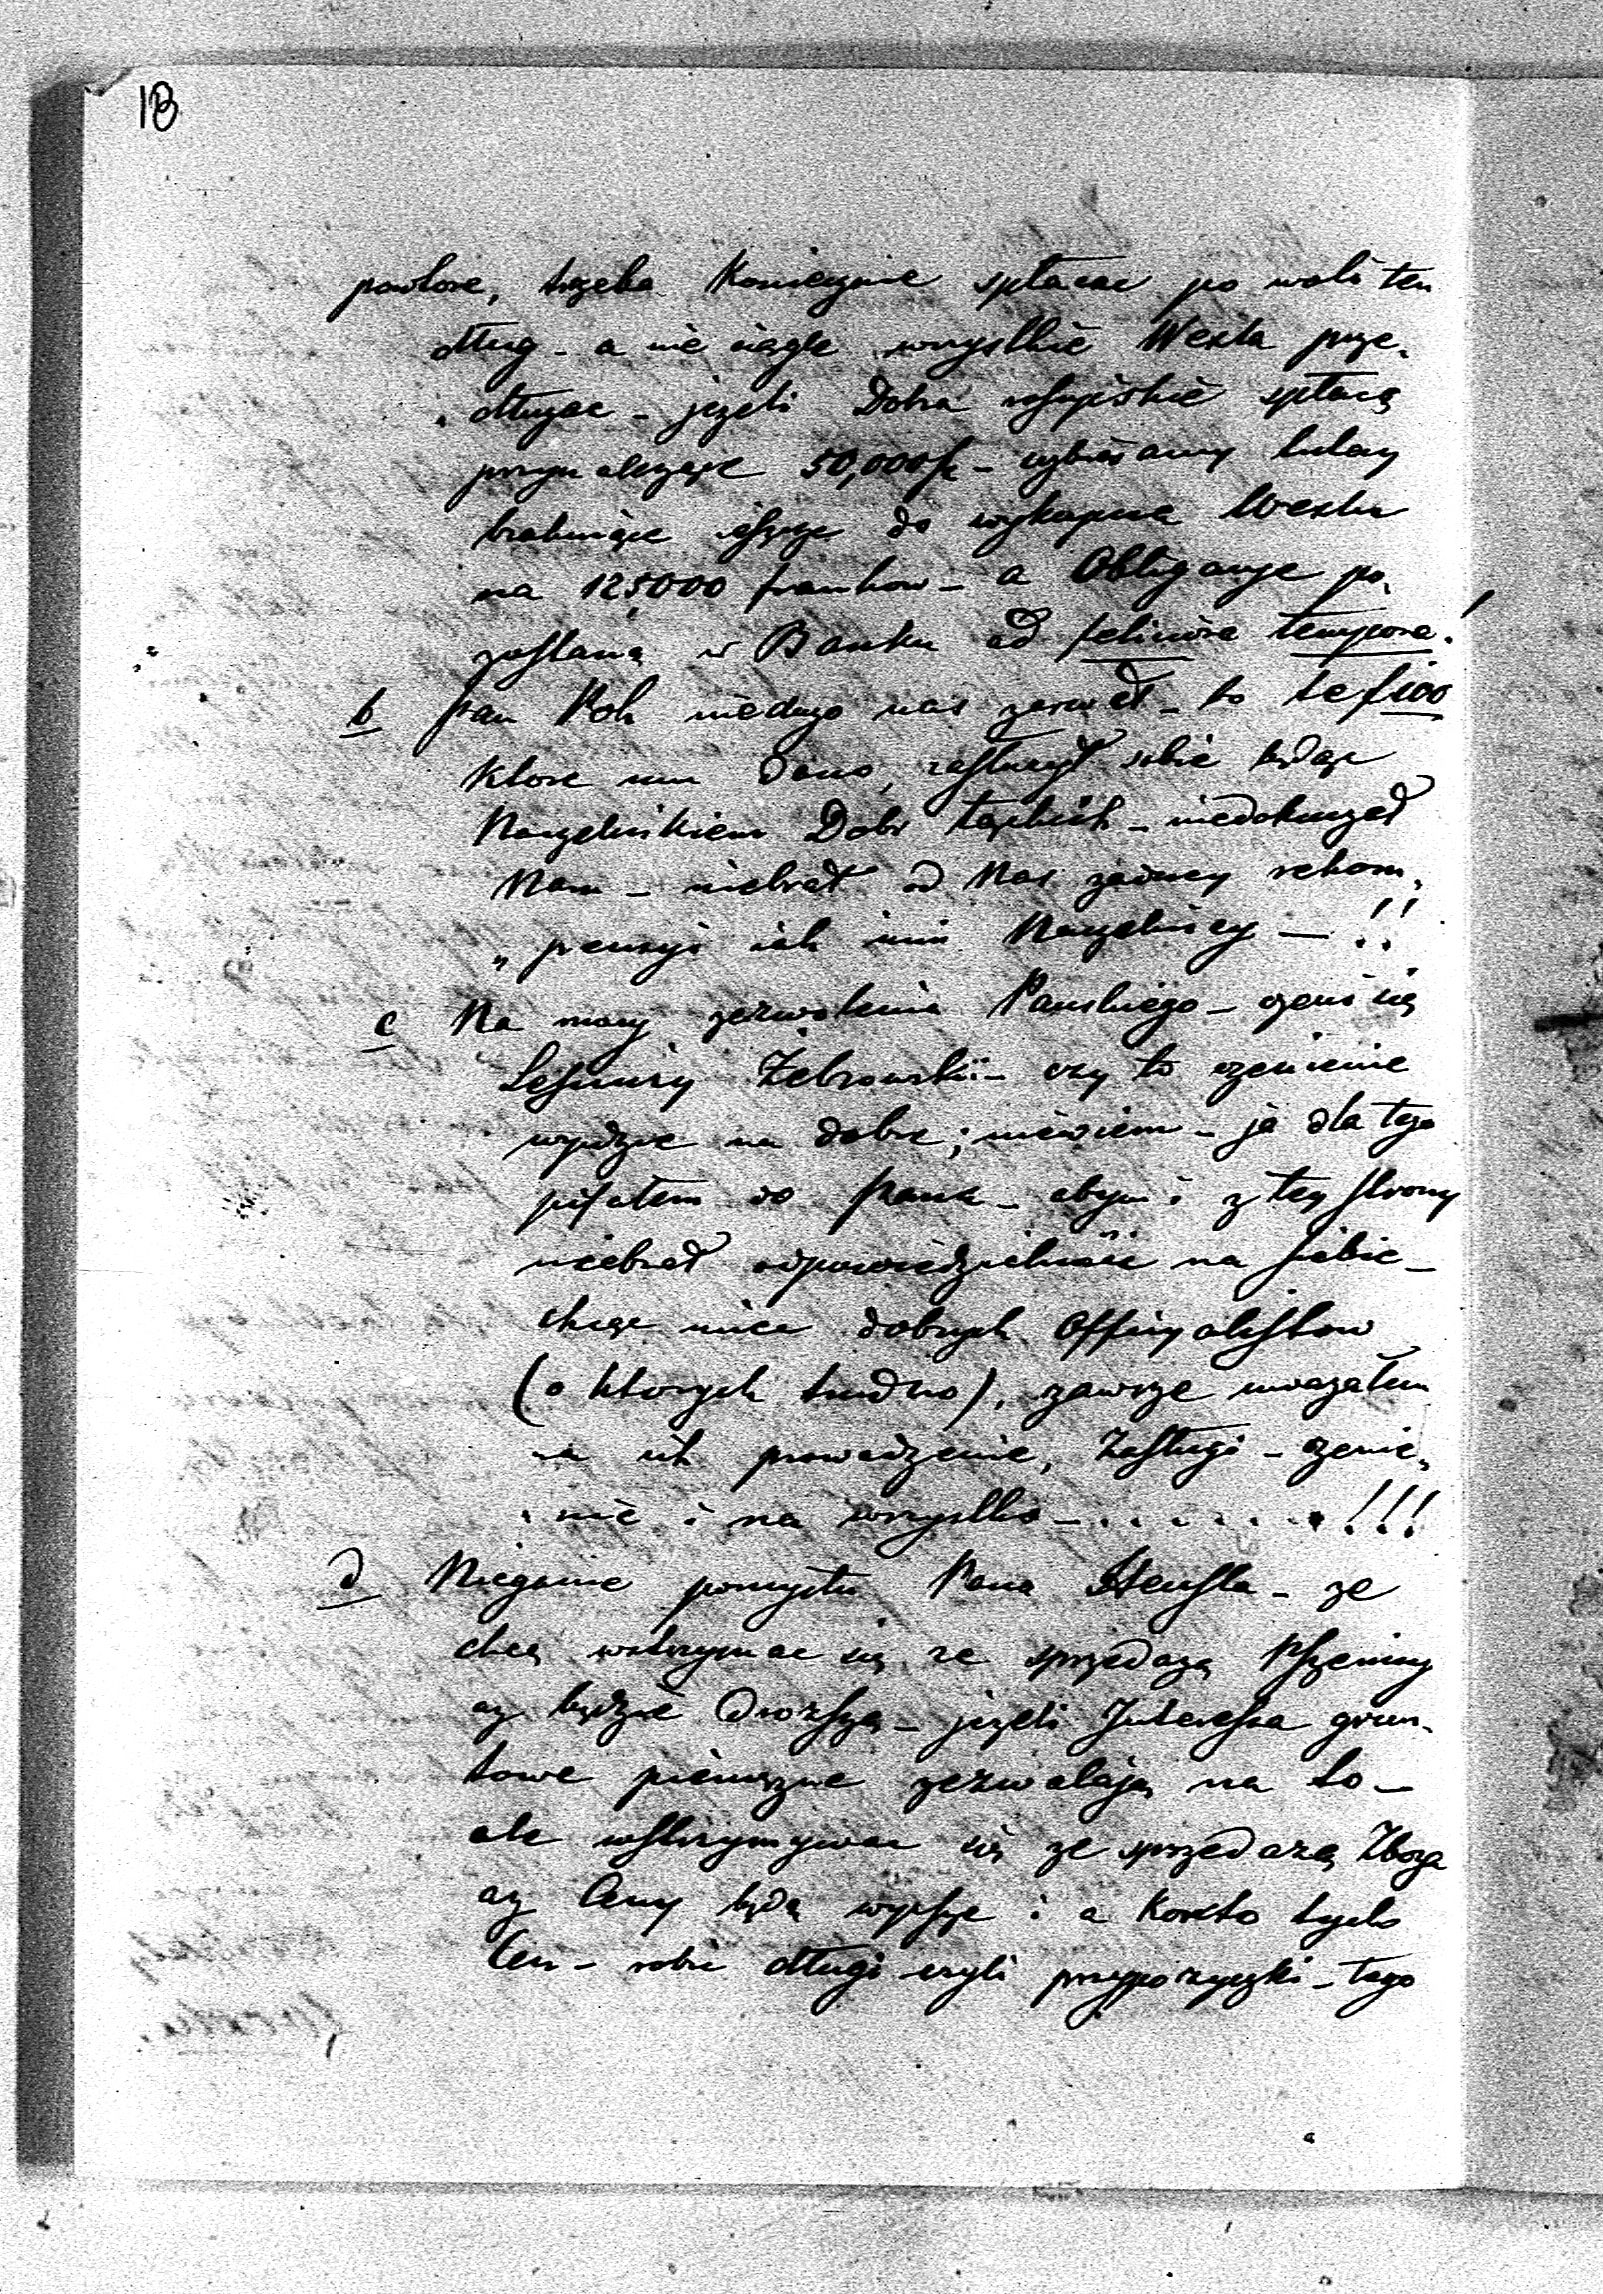 18
powtore, trzeba Koniecznie spłacac po woli ten
dług - a nie ciągle wszystkie Wexla prze„
„ dłuzac - jezeli Dobra rossyiskie spłacą
przynalezące 50,000 fr - wybieramy tutay
brakuiące ieszcze do wykupna Wexlu
na 125000 frankow - a Obligacye po„
zostaną w Banku ad feliciora tempora!
b Pan Roh niedugo nas zerwał - to te f 100
Ktore mu dano, zasłuzył sobie będąc
Naczelnikiem Dobr - niedokuczał
Nam - niebrał od Nas zadney rekom„
„ pensyi iak inni Naczelnicy - !!
c Na mocy zezwolenia Pańskiego - ozeni się
Lesniczy Żebrowski - czy to ozenienie
wyidzie na dobre; niewiem - ja dla tego
pisałem do Pana - abym i z tey strony
niebrał odpowiedzielności na siebie -
chcąc miec dobrych Officyalistow
(o ktorych trudno), zawsze uwazałem
na ich prowadzenie, Zasługi - ozenie„
„ nie i na wszystko - . . . . . . !!!
d Nieganie pomysłu Pana - ze
chcą wstrzymac się ze sprzedazą Pszenicy
az będzie Drozszą - jezeli Interessa grun„
towe pienięzne zezwalają na to -
ale wstrzymywac się ze sprzedazą Zboza
az Ceny będą wyzsze i a Konto tych
Cen - robic długi czyli przypozyczki - tego